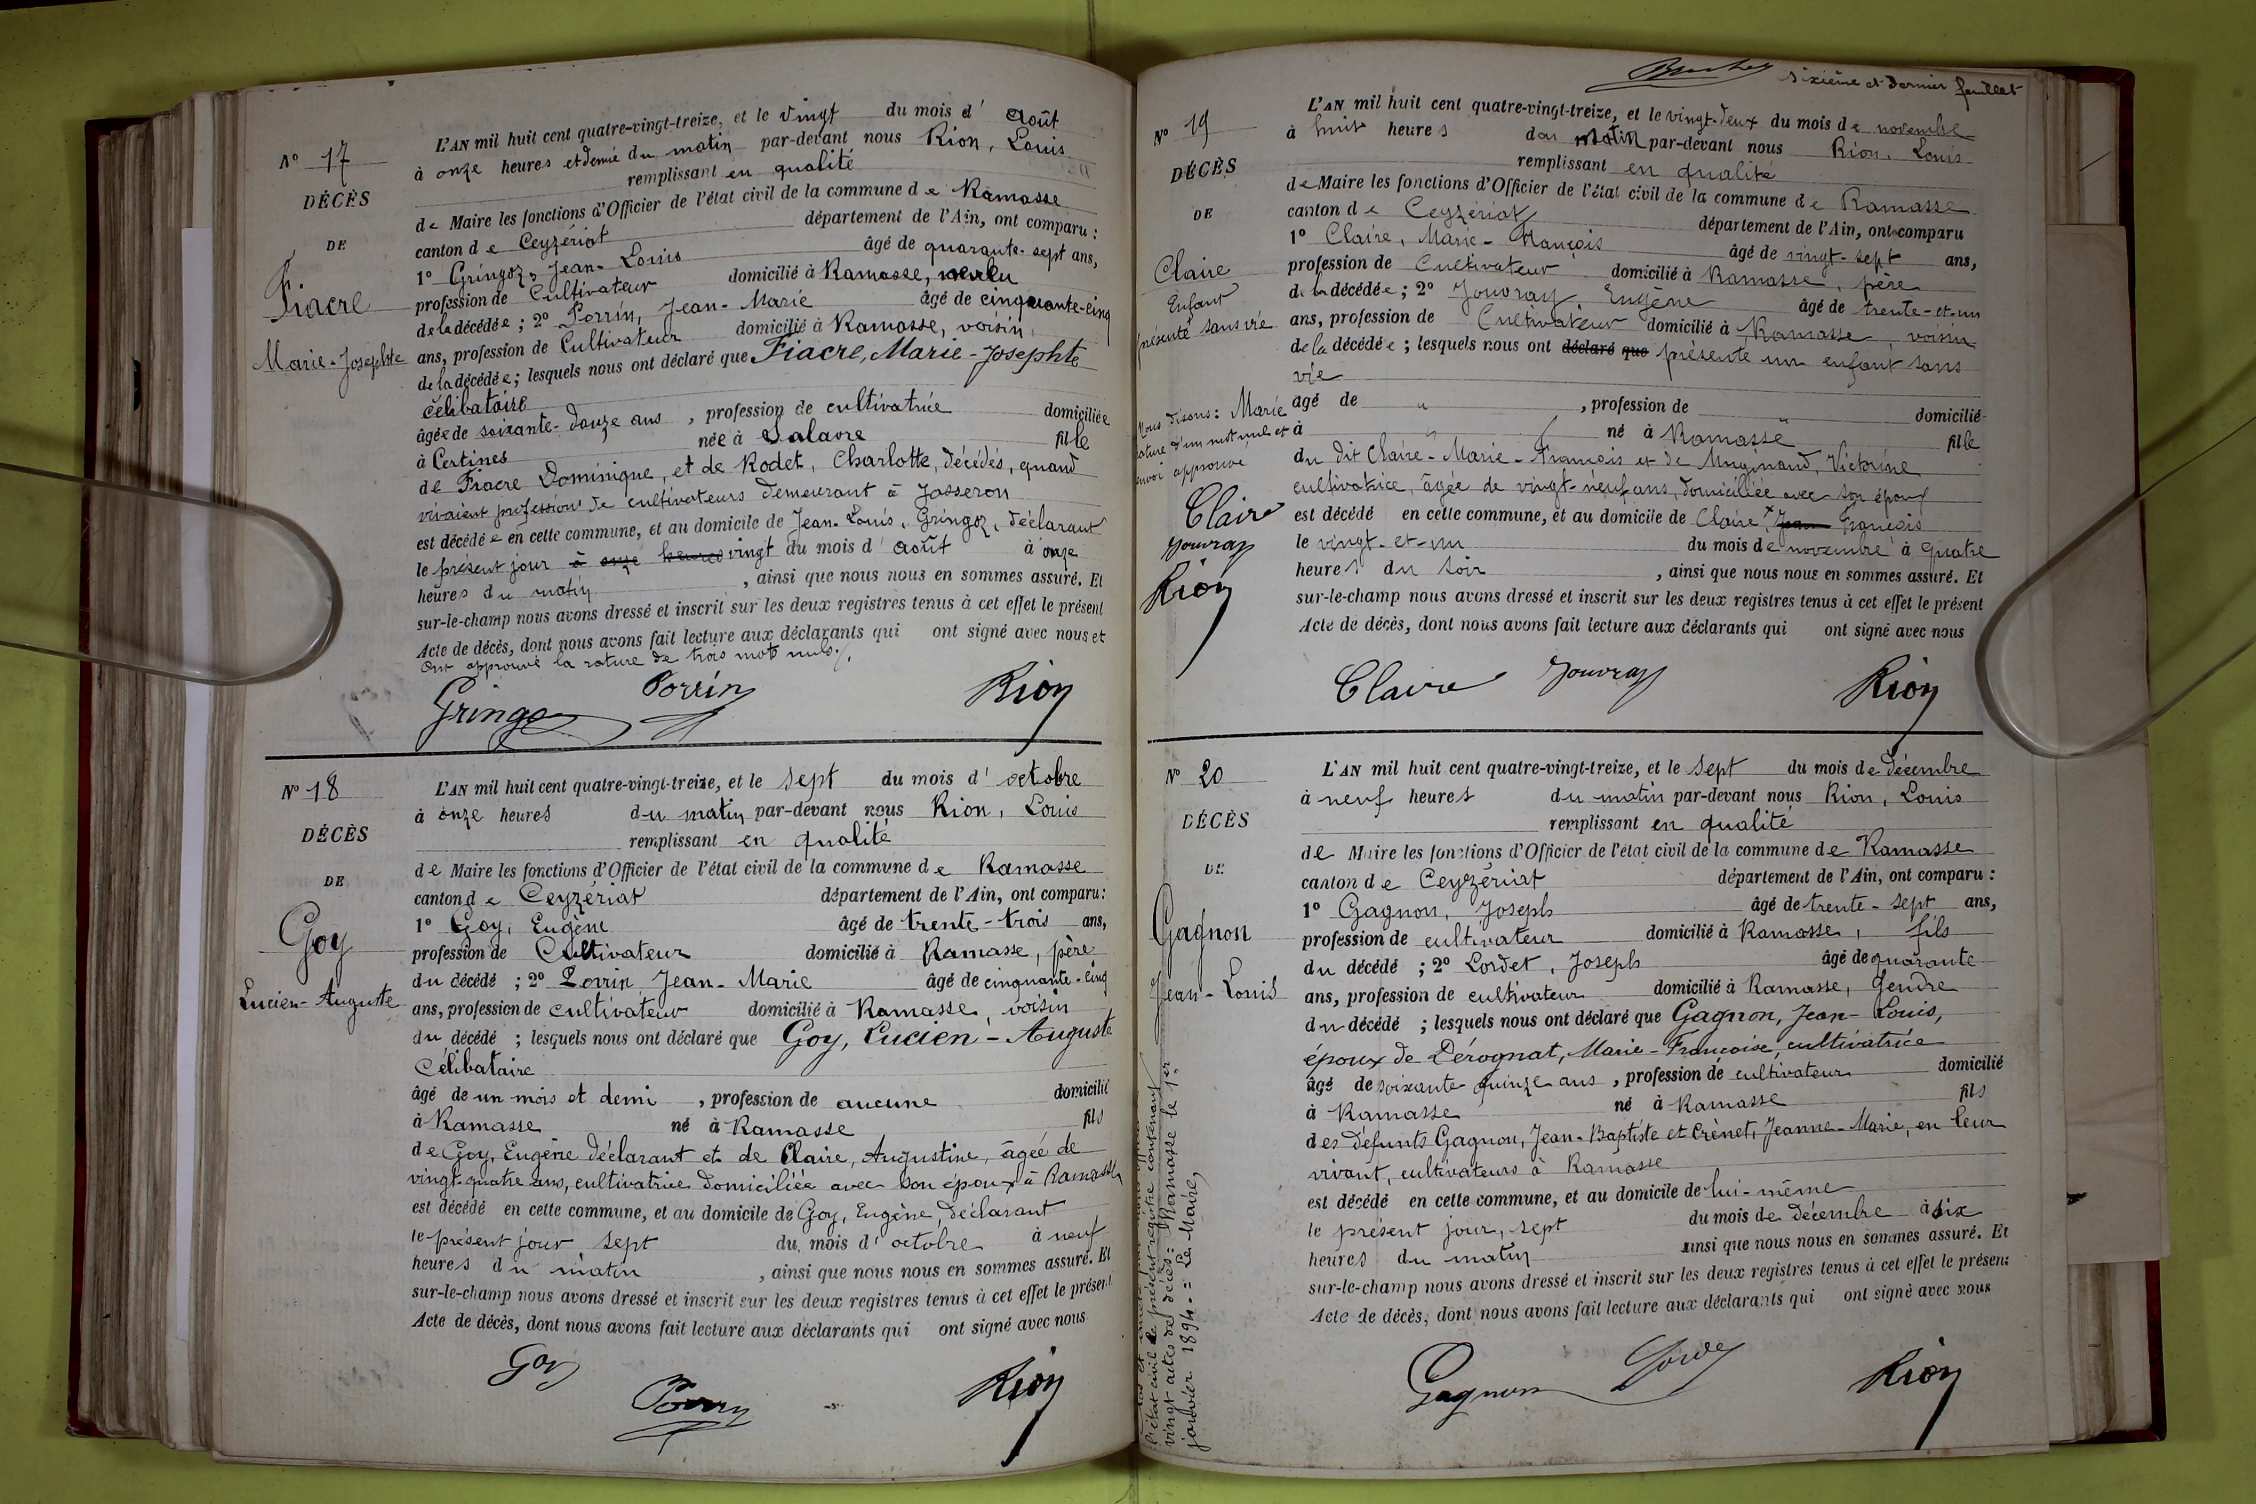 N° 17
DÉCÈS
DE
Fiacre
Marie-Josephte
L'AN mil huit cent quatre-vingt-treize, et le vingt du mois d' Août
à onze heures et demie du matin par-devant nous Rion, Louis
remplissant en qualité
de Maire les fonctions d'Officier de l'état civil de la commune de Ramasse
canton de Ceyzériat département de l'Ain, ont comparu :
1° Gringoz, Jean-Louis âgé de quarante-sept ans,
profession de Cultivateur domicilié à Ramasse, neveu
de la décédée ; 2° Perrin, Jean-Marie âgé de cinquante-cinq
ans, profession de Cultivateur domicilié à Ramasse, voisin
de la décédée ; lesquels nous ont déclaré que Fiacre, Marie-Josephte
célibataire
âgée de soixante-douze ans, profession de cultivatrice domiciliée
à Certines née à Salavre fille
de Fiacre Dominique, et de Rodet, Charlotte, décédés, quand
vivaient profession de cultivateurs demeurant à Jasseron
est décédée en cette commune, et au domicile de Jean-Louis, Gringoz, déclarant
le présent jour à onze heures vingt du mois d' août à onze
heures du matin, ainsi que nous nous en sommes assuré. Et
sur-le-champ nous avons dressé et inscrit sur les deux registres tenus à cet effet le présent
Acte de décès, dont nous avons fait lecture aux déclarants qui ont signé avec nous et
ont approuvé la rature de trois mots nuls.
Gringoz Perrin Rion
N° 18
DÉCÈS
DE
Goy
Lucien-Auguste
L'AN mil huit cent quatre-vingt-treize, et le sept du mois d' octobre
à onze heures du matin par-devant nous Rion, Louis
remplissant en qualité
de Maire les fonctions d'Officier de l'état civil de la commune de Ramasse
canton de Ceyzériat département de l'Ain, ont comparu :
1° Goy, Eugène âgé de trente-trois ans,
profession de Cultivateur domicilié à Ramasse, père
du décédé ; 2° Perrin, Jean-Marie âgé de cinquante-cinq
ans, profession de cultivateur domicilié à Ramasse, voisin
du décédé ; lesquels nous ont déclaré que Goy, Lucien-Auguste
Célibataire
âgé de un mois et demi, profession de aucune domicilié
à Ramasse né à Ramasse fils
de Goy, Eugène déclarant et de Claire, Augustine, âgée de
vingt-quatre ans, cultivatrice domiciliée avec son époux à Ramasse
est décédé en cette commune, et au domicile de Goy, Eugène, déclarant
le présent jour, sept du mois d' octobre à neuf
heures du matin, ainsi que nous nous en sommes assuré. Et
sur-le-champ nous avons dressé et inscrit sur les deux registres tenus à cet effet le présent
Acte de décès, dont nous avons fait lecture aux déclarants qui ont signé avec nous
Goy Perrin Rion
sixième et dernier feuillet
N° 19
DÉCÈS
DE
Claire
Enfant
présenté sans vie
L'AN mil huit cent quatre-vingt-treize, et le vingt-deux du mois de novembre
à huit heures du matin par-devant nous Rion, Louis
remplissant en qualité
de Maire les fonctions d'Officier de l'état civil de la commune de Ramasse
canton de Ceyzériat département de l'Ain, ont comparu
1° Claire, Marie-François âgé de vingt-sept ans,
profession de Cultivateur domicilié à Ramasse, père
de la décédée ; 2° Jouvray, Eugène âgé de trente-et-un
ans, profession de Cultivateur domicilié à Ramasse, voisin
de la décédée ; lesquels nous ont déclaré que présente un enfant sans
vie
âgé de " , profession de domicilié
à " né à Ramasse fille
du dit Claire-Marie-François et de Muginaud, Victorine
cultivatrice, âgée de vingt-neuf ans, domiciliée avec son époux
est décédé en cette commune, et au domicile de Claire × Jean François
le vingt-et-un du mois de novembre à quatre
heures du soir, ainsi que nous nous en sommes assuré. Et
sur-le-champ nous avons dressé et inscrit sur les deux registres tenus à cet effet le présent
Acte de décès, dont nous avons fait lecture aux déclarants qui ont signé avec nous
Nous disons : Marie
rature d'un mot nul et
renvoi approuvé
Claire
Jouvray
Rion
Claire Jouvray Rion
N° 20
DÉCÈS
DE
Gagnon
Jean-Louis
L'AN mil huit cent quatre-vingt-treize, et le sept du mois de décembre
à neuf heures du matin par-devant nous Rion, Louis
remplissant en qualité
de Maire les fonctions d'Officier de l'état civil de la commune de Ramasse
canton de Ceyzériat département de l'Ain, ont comparu :
1° Gagnon, Joseph âgé de trente-sept ans,
profession de cultivateur domicilié à Ramasse, fils
du décédé ; 2° Lordet, Joseph âgé de quarante
ans, profession de cultivateur domicilié à Ramasse, gendre
du décédé ; lesquels nous ont déclaré que Gagnon, Jean-Louis,
époux de Dérognat, Marie-Françoise, cultivatrice
âgé de soixante quinze ans, profession de cultivateur domicilié
à Ramasse né à Ramasse fils
des défunts Gagnon, Jean-Baptiste et Crènet, Jeanne-Marie, en leur
vivant, cultivateurs à Ramasse
est décédé en cette commune, et au domicile de lui-même
le présent jour, sept du mois de décembre à six
heures du matin ainsi que nous nous en sommes assuré. Et
sur-le-champ nous avons dressé et inscrit sur les deux registres tenus à cet effet le présent
Acte de décès, dont nous avons fait lecture aux déclarants qui ont signé avec nous
Gagnon Rion
l'état civil le présent registre contenant
vingt actes de décès : Ramasse le 1er
janvier 1894.- Le Maire,